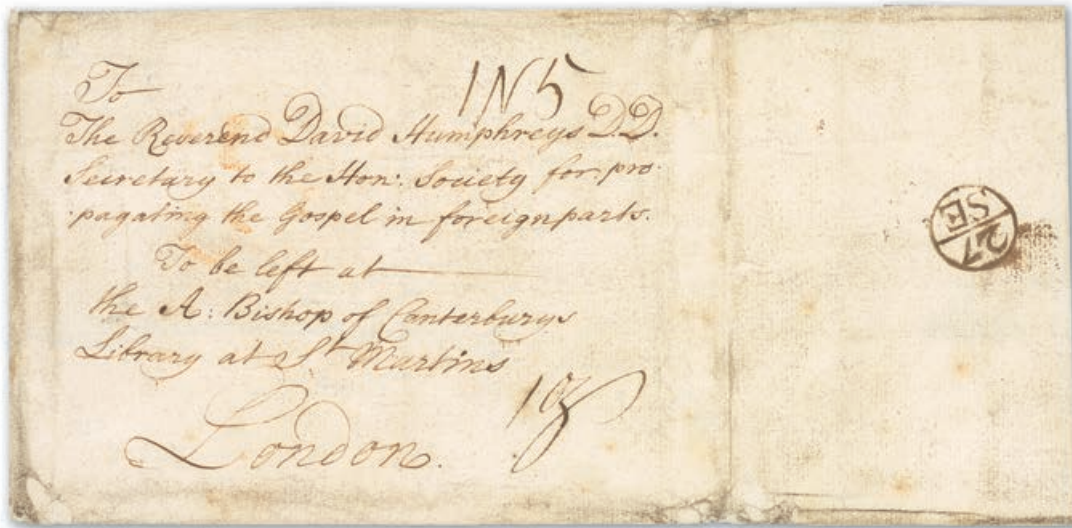 To
IN 5
The Reverend David Humphreys D.D.
Secretary to the Hon: Society for pro-
-pagating the Gospel in foreign parts.
To be left at
the A: Bishop of Canterburys
Library at St Martins
London.
SE
27